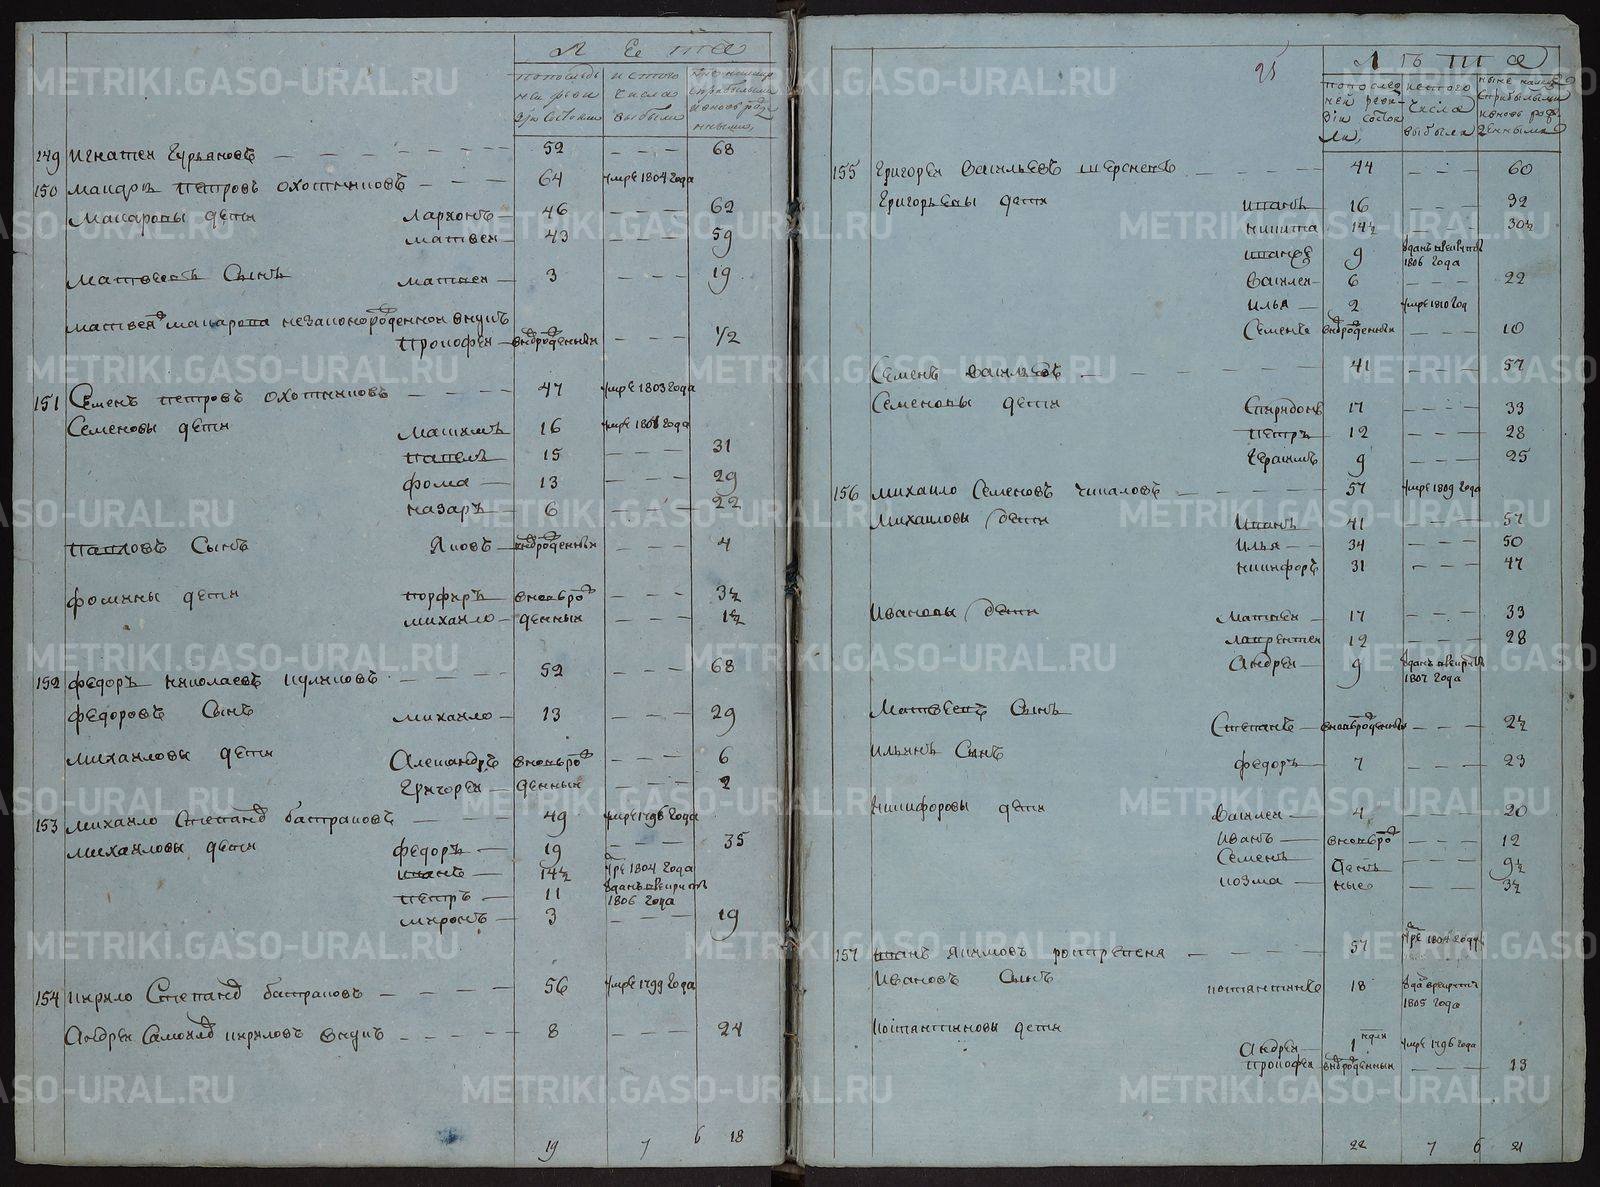 Л е т а
по последней ревизіи состояли
изтого числа выбыли
ныне налицо сприбылыми ивновь рожденными
149 игнатеи гурьяновъ 52 68
150 макаръ петровъ охотниковъ 64 умре 1804 года
макаровы дети Ларионъ 46 62
матвеи 43 59
матвеевъ Сынъ матвеи 3 19
матвея макарова незаконорожденнои внукъ
прокофеи вновьрожденныи 1/2
151 Семенъ петровъ охотниковъ 47 умре 1803 года
Семеновы дети максимъ 16 умре 1808 года
павелъ 15 31
фома 13 29
назаръ 6 22
павловъ Сынъ Яковъ вновьрожденныи 4
фомины дети порфиръ вновьро 3½
михаило жденныи 1½
152 федоръ николаевъ куликовъ 52 68
федоровъ Сынъ михаило 13 29
михаиловы дети Александръ вновьро 6
григореи жденныи 2
153 михаило Степановъ батраковъ 49 умре 1796 года
михаиловы дети федоръ 19 35
иванъ 14½ умре 1804 года
петръ 11 зданъ врекруты 1806 года
миронъ 3 19
154 кирило Степановъ батраковъ 56 умре 1799 года
Андреи Самоиловъ кириловъ внукъ 8 24
19 7 6 18
25
Л е т а
по последней ревизіи состояли
изтого числа выбыли
ныне налицо сприбылыми ивновь рожденными
155 григореи васильевъ шерстневъ 44 60
григорьевы дети иванъ 16 32
никита 14½ 30½
иванъ 9 зданъ врекруты 1806 года
василеи 6 22
илья 2 умре 1810 год
Семенъ вновьрожденныи 10
Семенъ васильевъ 41 57
Семеновы дети Спиридонъ 17 33
петръ 12 28
герасимъ 9 25
156 михаило Семеновъ чикаловъ 57 умре 1809 года
михаиловы дети иванъ 41 57
илья 34 50
никифоръ 31 47
ивановы дети матвеи 17 33
лаврентеи 12 28
андреи 9 зданъ врекруты 1807 года
матвеевъ Сынъ Степанъ вновьрожденныи 2½
ильинъ Сынъ федоръ 7 23
никифоровы дети василеи 4 20
иванъ вновьро 12
Семенъ жден 9½
козма ные 3½
157 иванъ якимовъ 57 умре 1804 году
ивановъ Сынъ костантинъ 18 зданъ врекруты 1805 года
костантиновы дети
Андреи 1 ндли умре 1796 года
прокофеи вновьрожденныи 13
22 7 6 21
METRIKI.GASO-URAL.RU